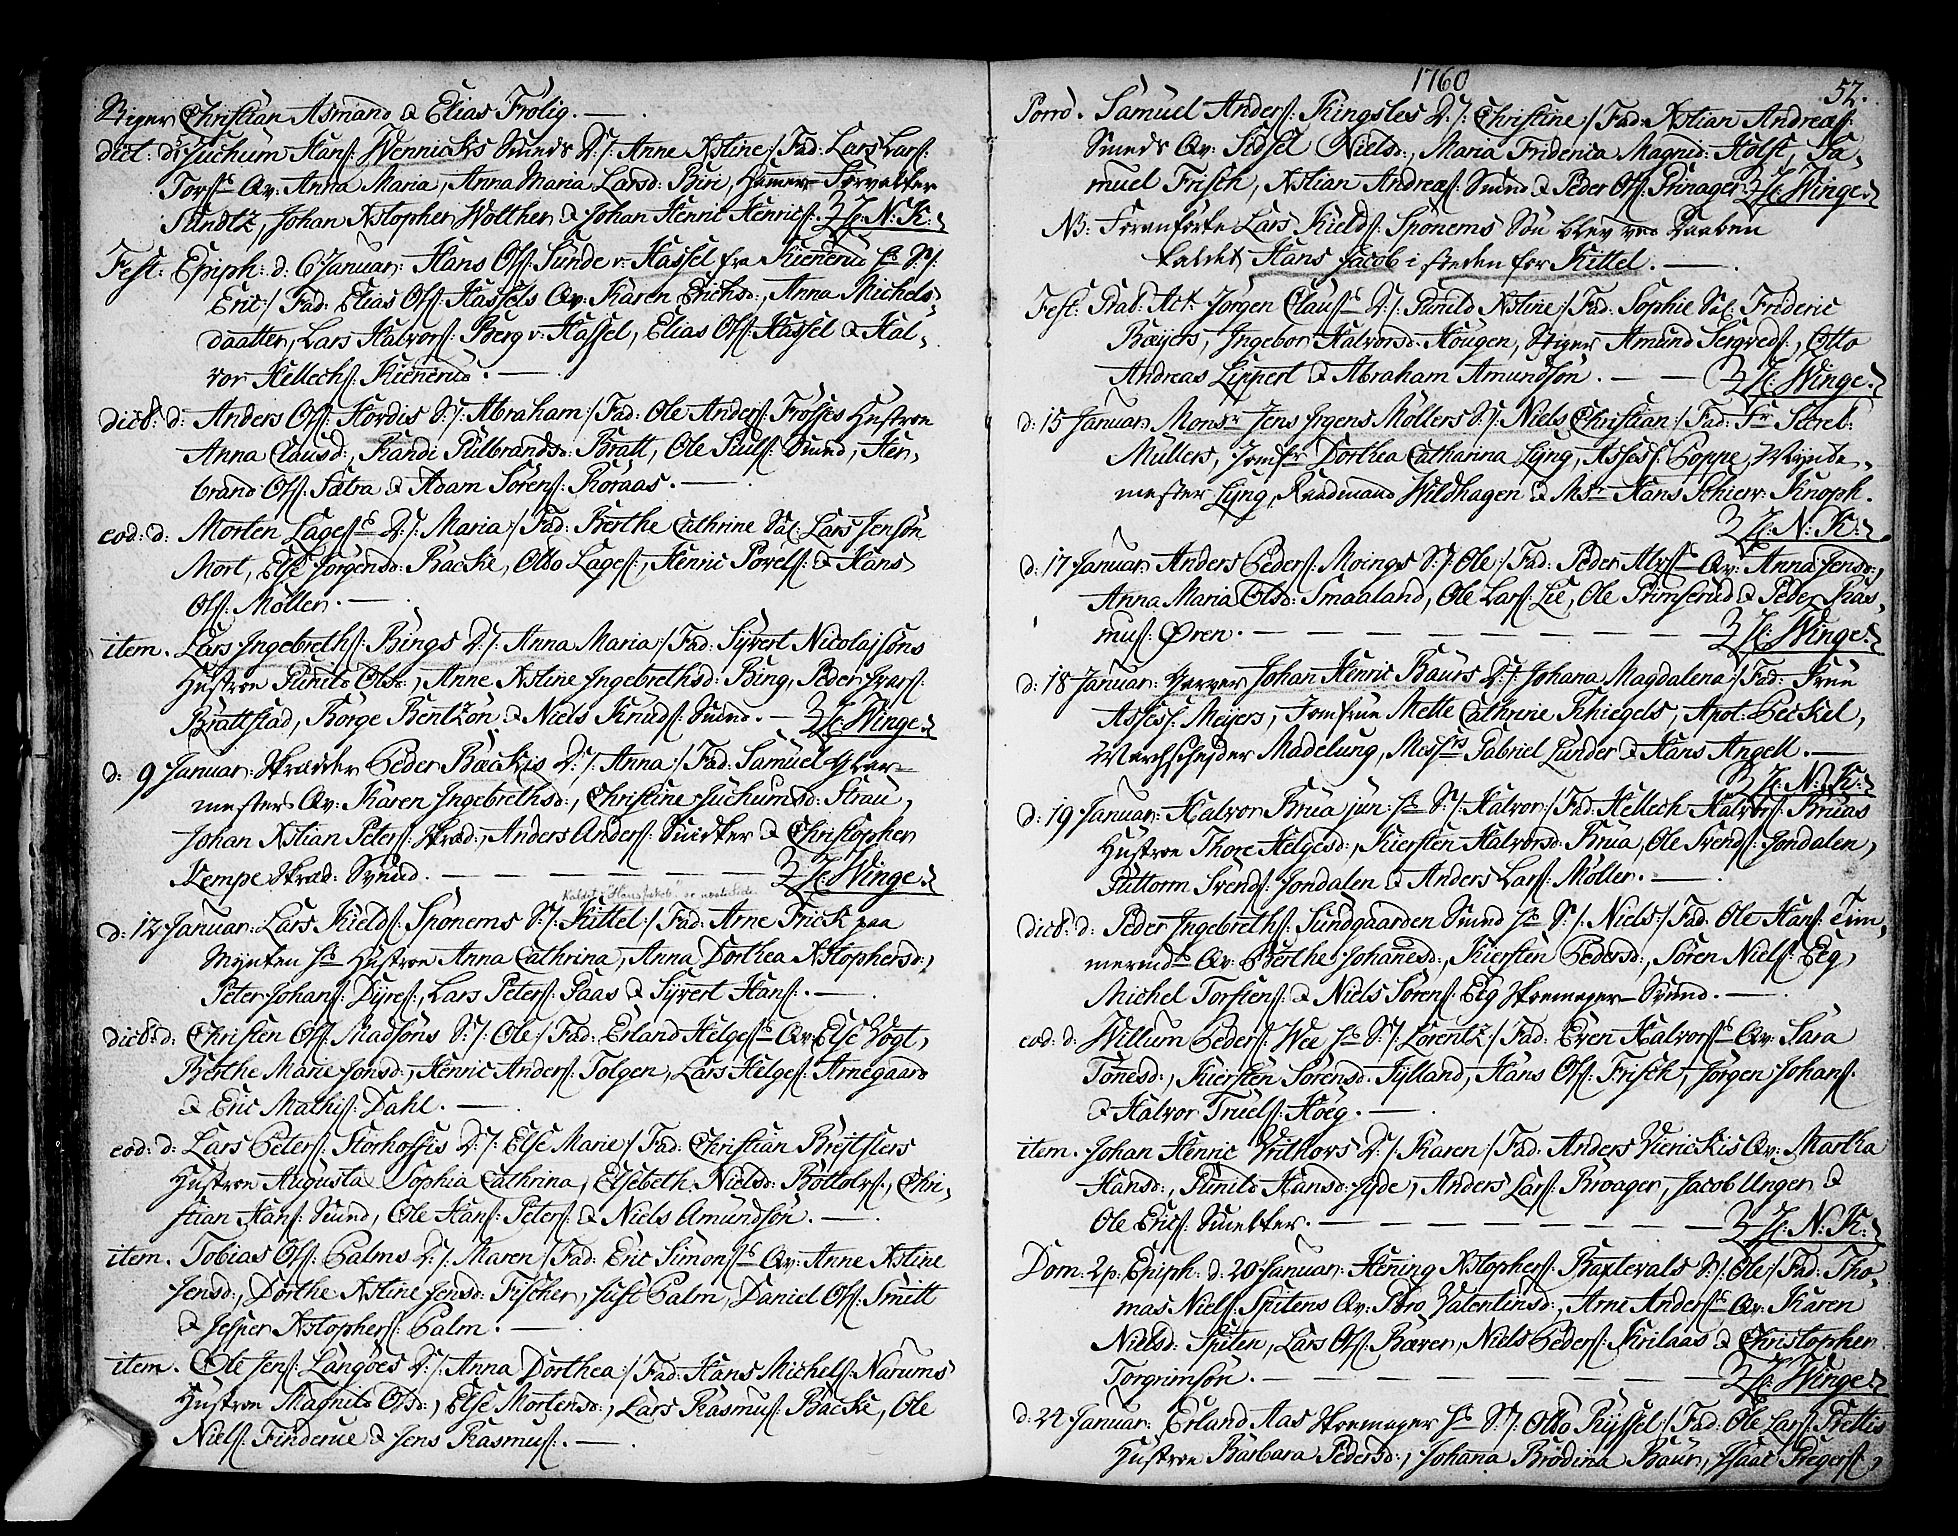 Stiger Christian Asmand & Elias Frølig. —
dict: d: Juchum Hans: Wennicks Smeds D:/: Anne Xstine:/ Fad: Lars Lars:
Torsts Qv: Anna Maria, Anna Maria Larsd: Biri, Hamer-Forvalter
Sundtz, Johan Xstopher Wolther & Johan Henric Henrics: H: N: K:
Fest: Epiph: d: 6 Januar: Hans Ols: Sunde v: Hassel fra Kienerud hs S:/:
Eric:/ Fad: Elias Ols: Hassels Qv: Karen Erichsd:, Anna Michels
daatter, Lars Halvors: Berg v: Hassel, Elias Ols: Hassel & Hal-
vor Kellechs: Kienerud. —
dict: d: Anders Ols: Hordis S:/: Abraham:/ Fad: Ole Anders: Fosses Hustroe
Anna Clausd:, Randi Gulbrandsd: Bratt, Ole Juls: Smed, Hen-
brand Ols: Sætra & Adam Sørens: Roraas. —
eod: d: Morten Lagesses D:/: Maria:/ Fad: Berthe Cathrine Sal: Lars Jensøn
Mort, Else Jørgensd: Backe, Otto Lages:, Henric Povels: & Hans
Ols: Møller. —
item. Lars Ingebreths: Bings D:/: Anna Maria:/ Fad: Syvert Nicolaisøns
Hustroe Gunild Olsd:, Anne Xstine Ingebrethsd: Bing, Peder Ivars:
Brattstad, Børge Bentzøn & Niels Knuds: Smed. — H: Winge.
d: 9 Januar: Skrædder Peder Backis D:/: Anna:/ Fad: Samuel Glar-
mesters Qv: Karen Ingebrethsd:, Christine Juchumsd: Strau,
Johan Xstian Peters: Skræd:, Anders Anders: Smelter & Christopher
Kempe Skræd: Svend. — H: Winge.
Kaldet "Hans Jakob" se næste side
d: 12 Januar: Lars Kields: Sponems S:/: Kittel:/ Fad: Arne Frick paa
Mynten hs Hustroe Anna Cathrina, Anna Dorthea Xstophersd:,
Peter Johans: Dyres:, Lars Peters: Gaas & Syvert Hans:. —
dict: d: Christen Ols: Madsøns S:/: Ole:/ Fad: Erland Helgesses Qv: Else Vogt,
Berthe Marie Jonsd:, Henric Anders: Tolgen, Lars Helges: Arnegaard
& Eric Mathis: Dahl. —
eod: d: Lars Peters: Storhoffis D:/: Else Marie:/ Fad: Christian Breitslers
Hustroe Augusta Sophia Cathrina, Elsebeth Nielsd: Bottolvs:, Chri-
stian Hans: Smed, Ole Hans: Peters: & Niels Amundsøn. —
item. Tobias Ols: Palms D:/: Maren:/ Fad: Eric Simonses Qv: Anne Xstine
Jensd:, Dorthe Xstine Jensd: Fischer, Just Palm, Daniel Ols: Smitt
& Jesper Xstophers: Palm. —
item. Ole Jens: Langøes D:/: Anna Dorthea:/ Fad: Hans Michels: Narums
Hustroe Magnild Olsd:, Else Mortensd:, Lars Rasmus: Backe, Ole
Niels: Finderue & Jens Rasmus:. —
1760
52.
Porro. Samuel Anders: Kingsles D:/: Christine:/ Fad: Xstian Andreas:
Smeds Qv: Sidsel Nielsd:, Maria Friderica Magned: Holst, Sa-
muel Frisch, Xstian Andreas: Smed & Peder Ols: H: Winge.
NB: Foranførte Lars Kields: Sponems Søn blev ved Daaben
kaldet Hans Jacob i steden for Kittel. —
Fest: Stab: Act: Jørgen Clauses D:/: Gunild Xstine:/ Fad: Sophie Sal: Frideric
Bæijers, Ingebor Halvorsd: Hougen, Stiger Amund Sergveds:, Otto
Andreas Lippert & Abraham Amundsøn. — — H: Winge.
d: 15 Januar: Monsr Jens Jrgens Möllers S:/: Niels Christian:/ Fad: Fr Secret:
Müllers, Jomfr Dorthea Catharina Lyng, Assess: Poppe, Mynte-
mester Lyng, Raadmand Wildhagen & Mr Hans Schierv: Knoph.
H: N: K:
d: 17 Januar: Anders Peders: Moings S:/: Ole:/ Fad: Peder Alvses Qv: Anna Jensd:,
Anna Maria Olsd: Smaaland, Ole Lars: Lie, Ole Grimserud & Peder Ras-
mus: Øren. — — — H: Winge.
d: 18 Januar: Garver Johan Henric Baurs D:/: Johana Magdalena:/ Fad: Frue
Assess: Meijers, Jomfrue Melle Cathrine Schiegels, Apot: Peckel,
Marchscheider Madelung, Messrs Gabriel Lunder & Hans Angell. —
H: N: K:
d: 19 Januar: Halvor Brua jun: hs S:/: Halvor:/ Fad: Kellech Halvors: Bruas
Hustroe Thore Helgesd:, Kiersten Halvorsd: Brua, Ole Svends: Jondalen,
Guttorm Svends: Jondalen & Anders Lars: Møller. —
dict: d: Peder Ingebreths: Sundgaarden Smed hs S:/: Niels:/ Fad: Ole Hans: Tim-
mermds Qv: Berthe Johanesd:, Kiersten Pedersd:, Søren Niels: Eeg,
Michel Torstens: & Niels Sørens: Eeg Skoemager-Svend. —
eod: d: Willum Peders: Wee hs S:/: Lorentz:/ Fad: Even Halvorses Qv: Sara
Tonesd:, Kiersten Sørensd: Jylland, Hans Ols: Frisch, Jørgen Johans:
& Halvor Truels: Høeg. —
item. Johan Henric Writhovs D:/: Karen:/ Fad: Anders Vierickis Qv: Martha
Hansd:, Gunild Hansd: Jyde, Anders Lars: Broager, Jacob Unger &
Ole Erics: Smelter. — — — H: N: K:
Dom: 2 p: Epiph: d: 20 Januar: Hening Xstophers: Baxtevals S:/: Ole:/ Fad: Tho-
mas Niels: Spitens Qv: Gbro Valentinsd:, Arne Anderses Qv: Karen
Nielsd: Spiten, Lars Ols: Bæver, Niels Peders: Krilaas & Christopher
Torgrimsøn. — — — H: Winge.
d: 22 Januar: Erland Aas Skoemager hs S:/: Otto Ryssel:/ Fad: Ole Lars: Grettis
Hustroe Barbara Pedersd:, Johana Brodina Baur, Isaac Gregers:,